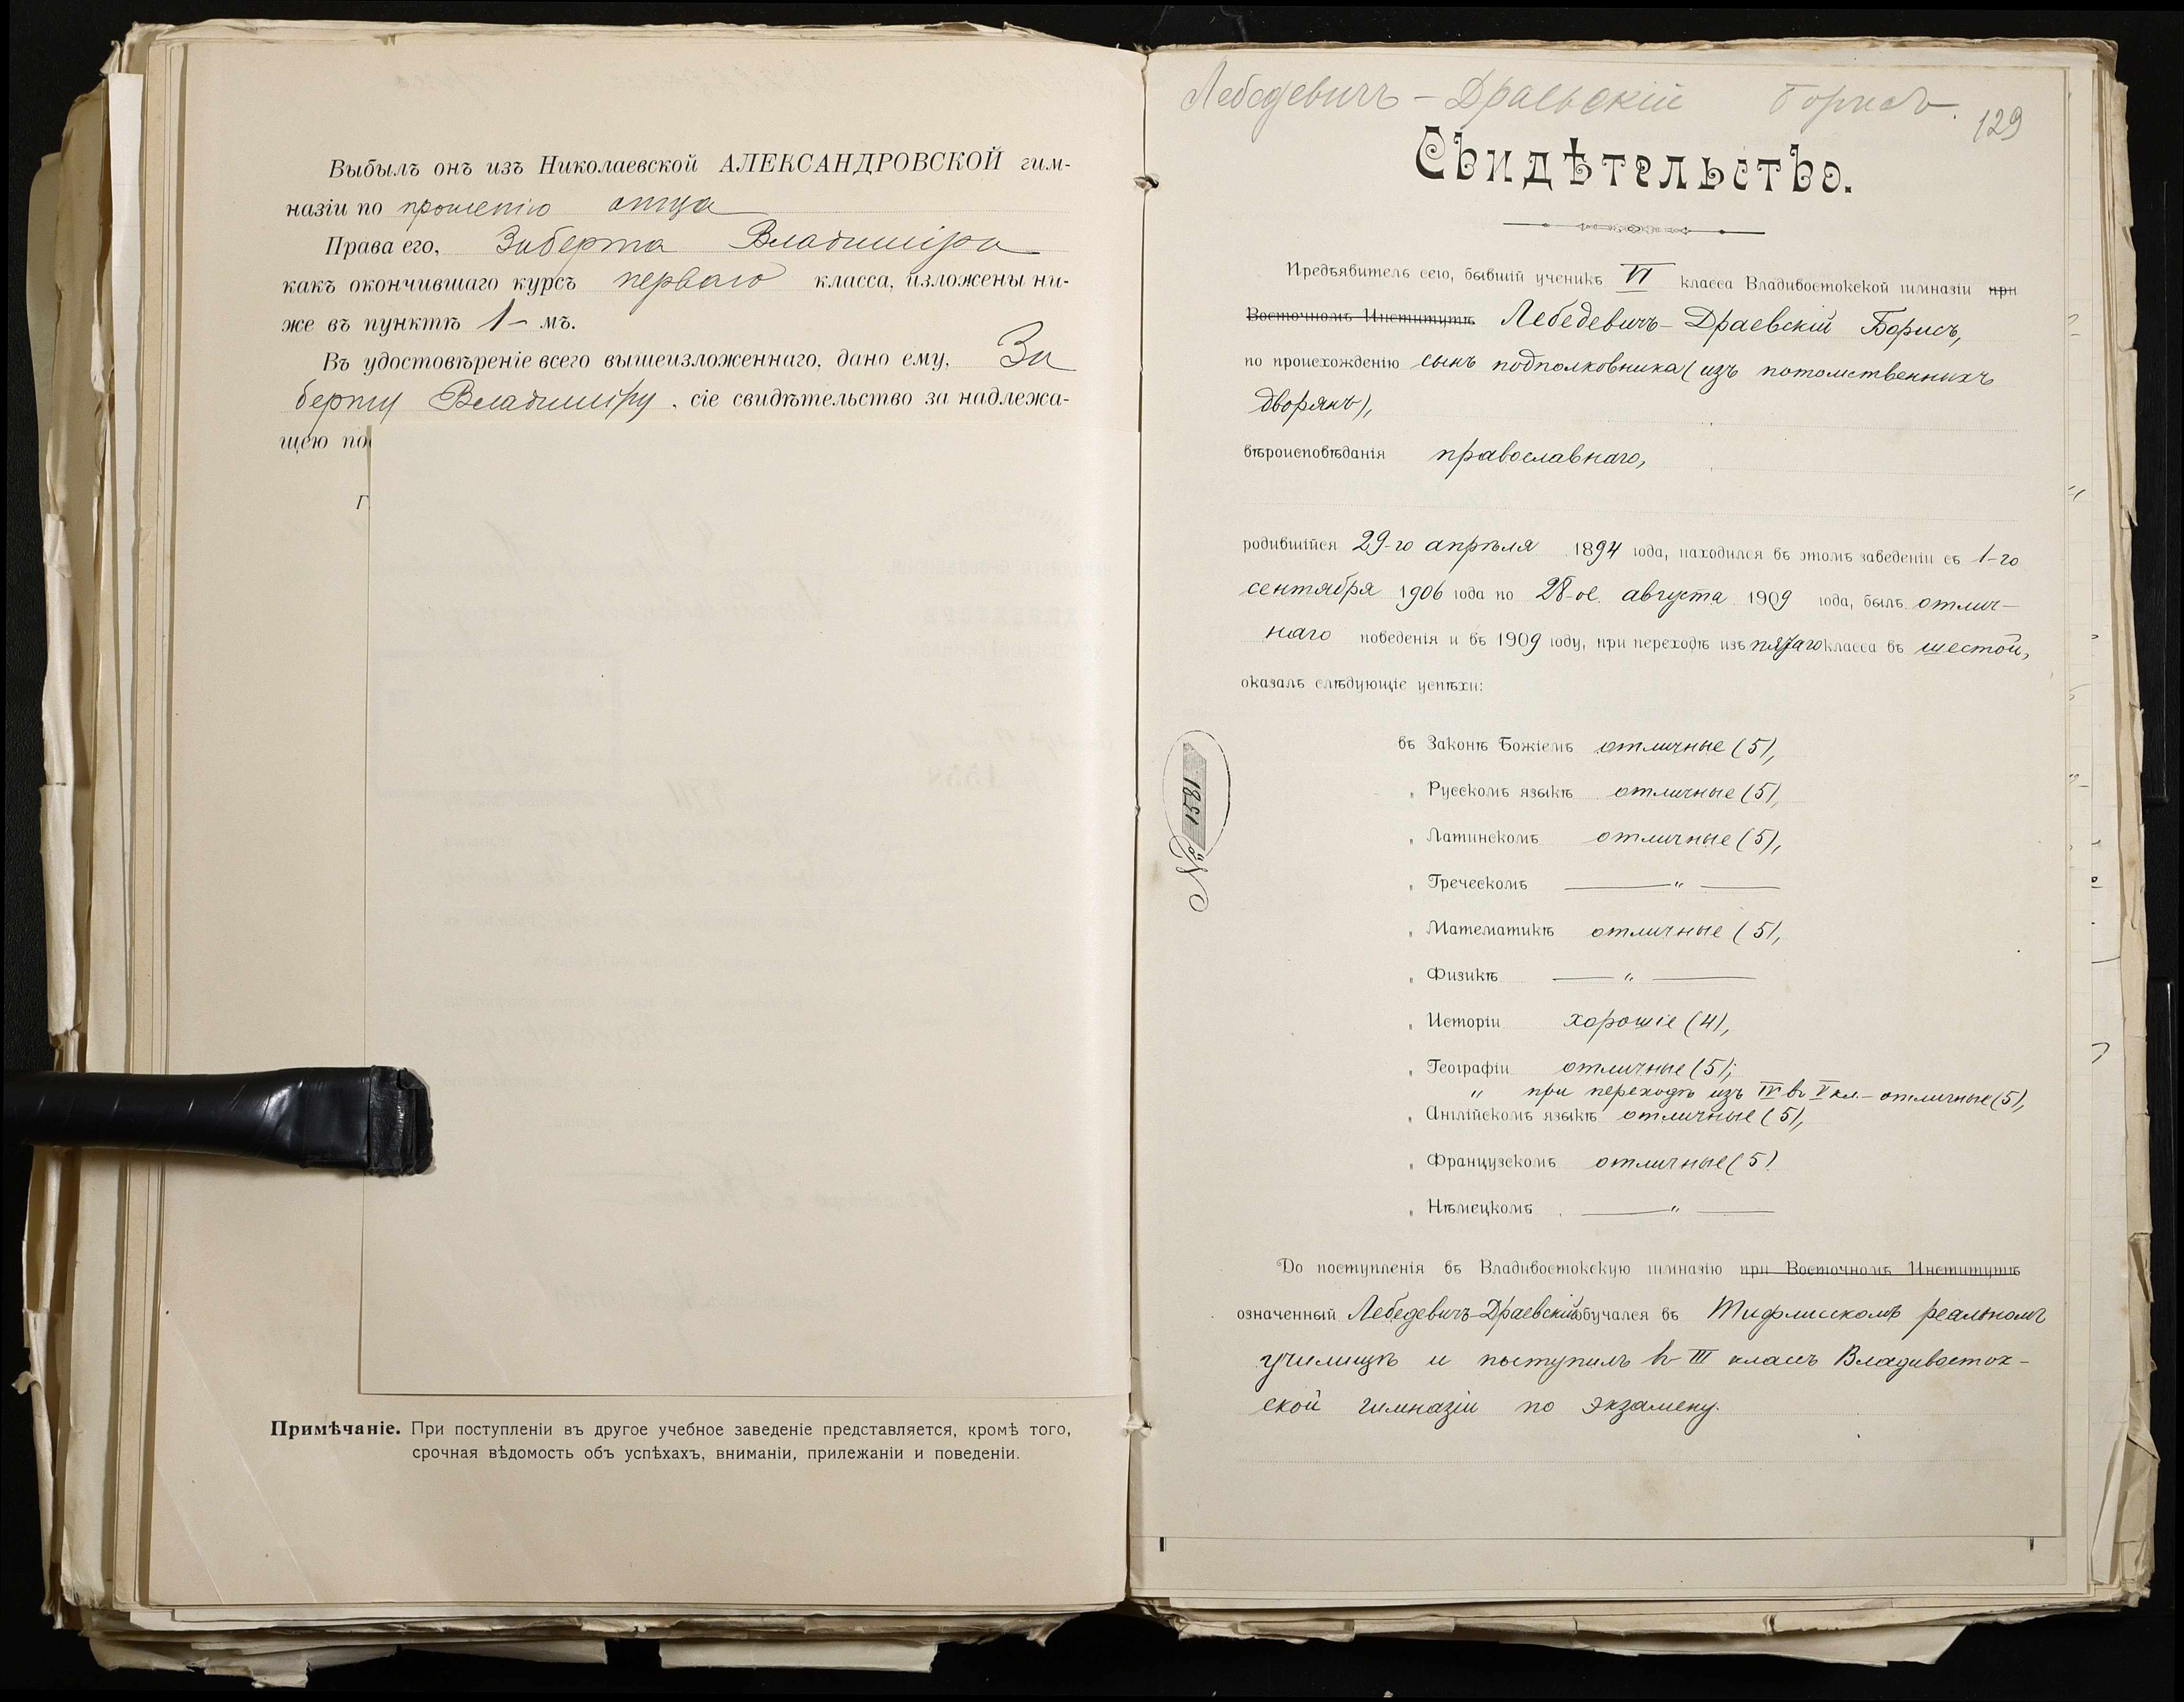 Выбылъ онъ изъ Николаевской АЛЕКСАНДРОВСКОЙ гим-
назіи по прошенію отца
Права его, Зиберта Владиміра
какъ окончившаго курсъ перваго класса, изложены ни-
же въ пунктѣ 1-мъ.
Въ удостовѣреніе всего вышеизложеннаго, дано ему, Зи
берту Владиміру, сіе свидѣтельство за надлежа-
щею по
Г
Примѣчаніе. При поступленіи въ другое учебное заведеніе представляется, кромѣ того,
срочная вѣдомость объ успѣхахъ, вниманіи, прилежаніи и поведеніи.
Лебедевичъ-Драевскій Борисъ.
129
Свидѣтельство.
Предъявитель сего, бывшій ученикъ VI класса Владивостокской гимназіи при
Восточномъ Институтѣ Лебедевичъ-Драевскій Борисъ,
по происхожденію сынъ подполковника (изъ потомственныхъ
дворянъ),
вѣроисповѣданія православнаго,
родившійся 29-го апрѣля 1894 года, находился въ этомъ заведеніи съ 1-го
сентября 1906 года по 28-ое августа 1909 года, былъ отлич-
наго поведенія и въ 1909 году, при переходѣ изъ пятаго класса въ шестой,
оказалъ слѣдующіе успѣхи:
въ Законѣ Божіемъ отличные (5),
„ Русскомъ языкѣ отличные (5),
„ Латинскомъ отличные (5),
„ Греческомъ — „ —
„ Математикѣ отличные (5),
„ Физикѣ — „ —
„ Исторіи хорошіе (4),
„ Географіи отличные (5);
„ при переходѣ изъ IV въ V кл.- отличные (5),
„ Англійскомъ языкѣ отличные (5),
„ Французскомъ отличные (5)
„ Нѣмецкомъ — „ —
№ 1851
До поступленія въ Владивостокскую гимназію при Восточномъ Институтѣ
означенный Лебедевичъ-Драевскій обучался въ Тифлисскомъ реальномъ
училищѣ и поступилъ въ III классъ Владивосток-
ской гимназіи по экзамену.